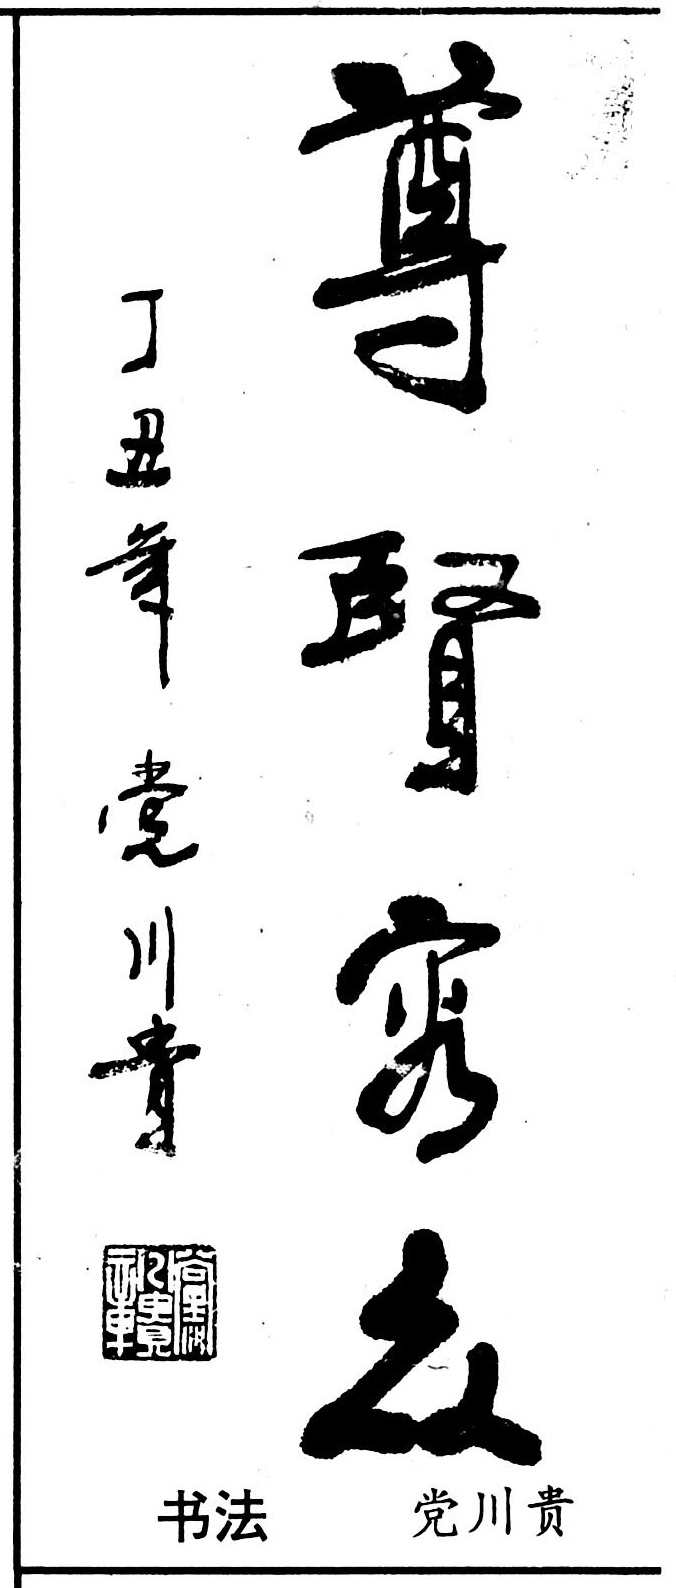 尊賢容众
丁丑年 党川貴
书法 党川贵